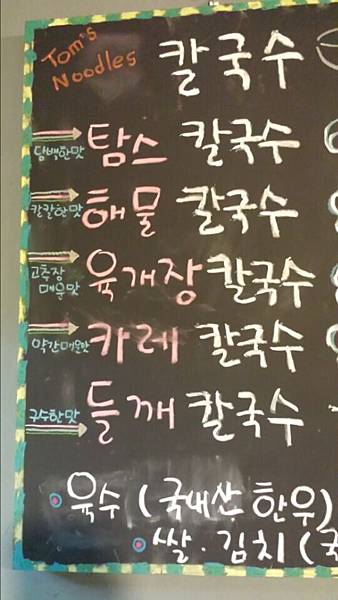 Tom's
Noodles
칼국수
담백한맛 탐스 칼국수
칼칼한맛 해물 칼국수
고추장
매운맛 육개장 칼국수
약간매운맛 카레 칼국수
구수한맛 들깨 칼국수
육수 (국내산 한우)
쌀·김치 (국